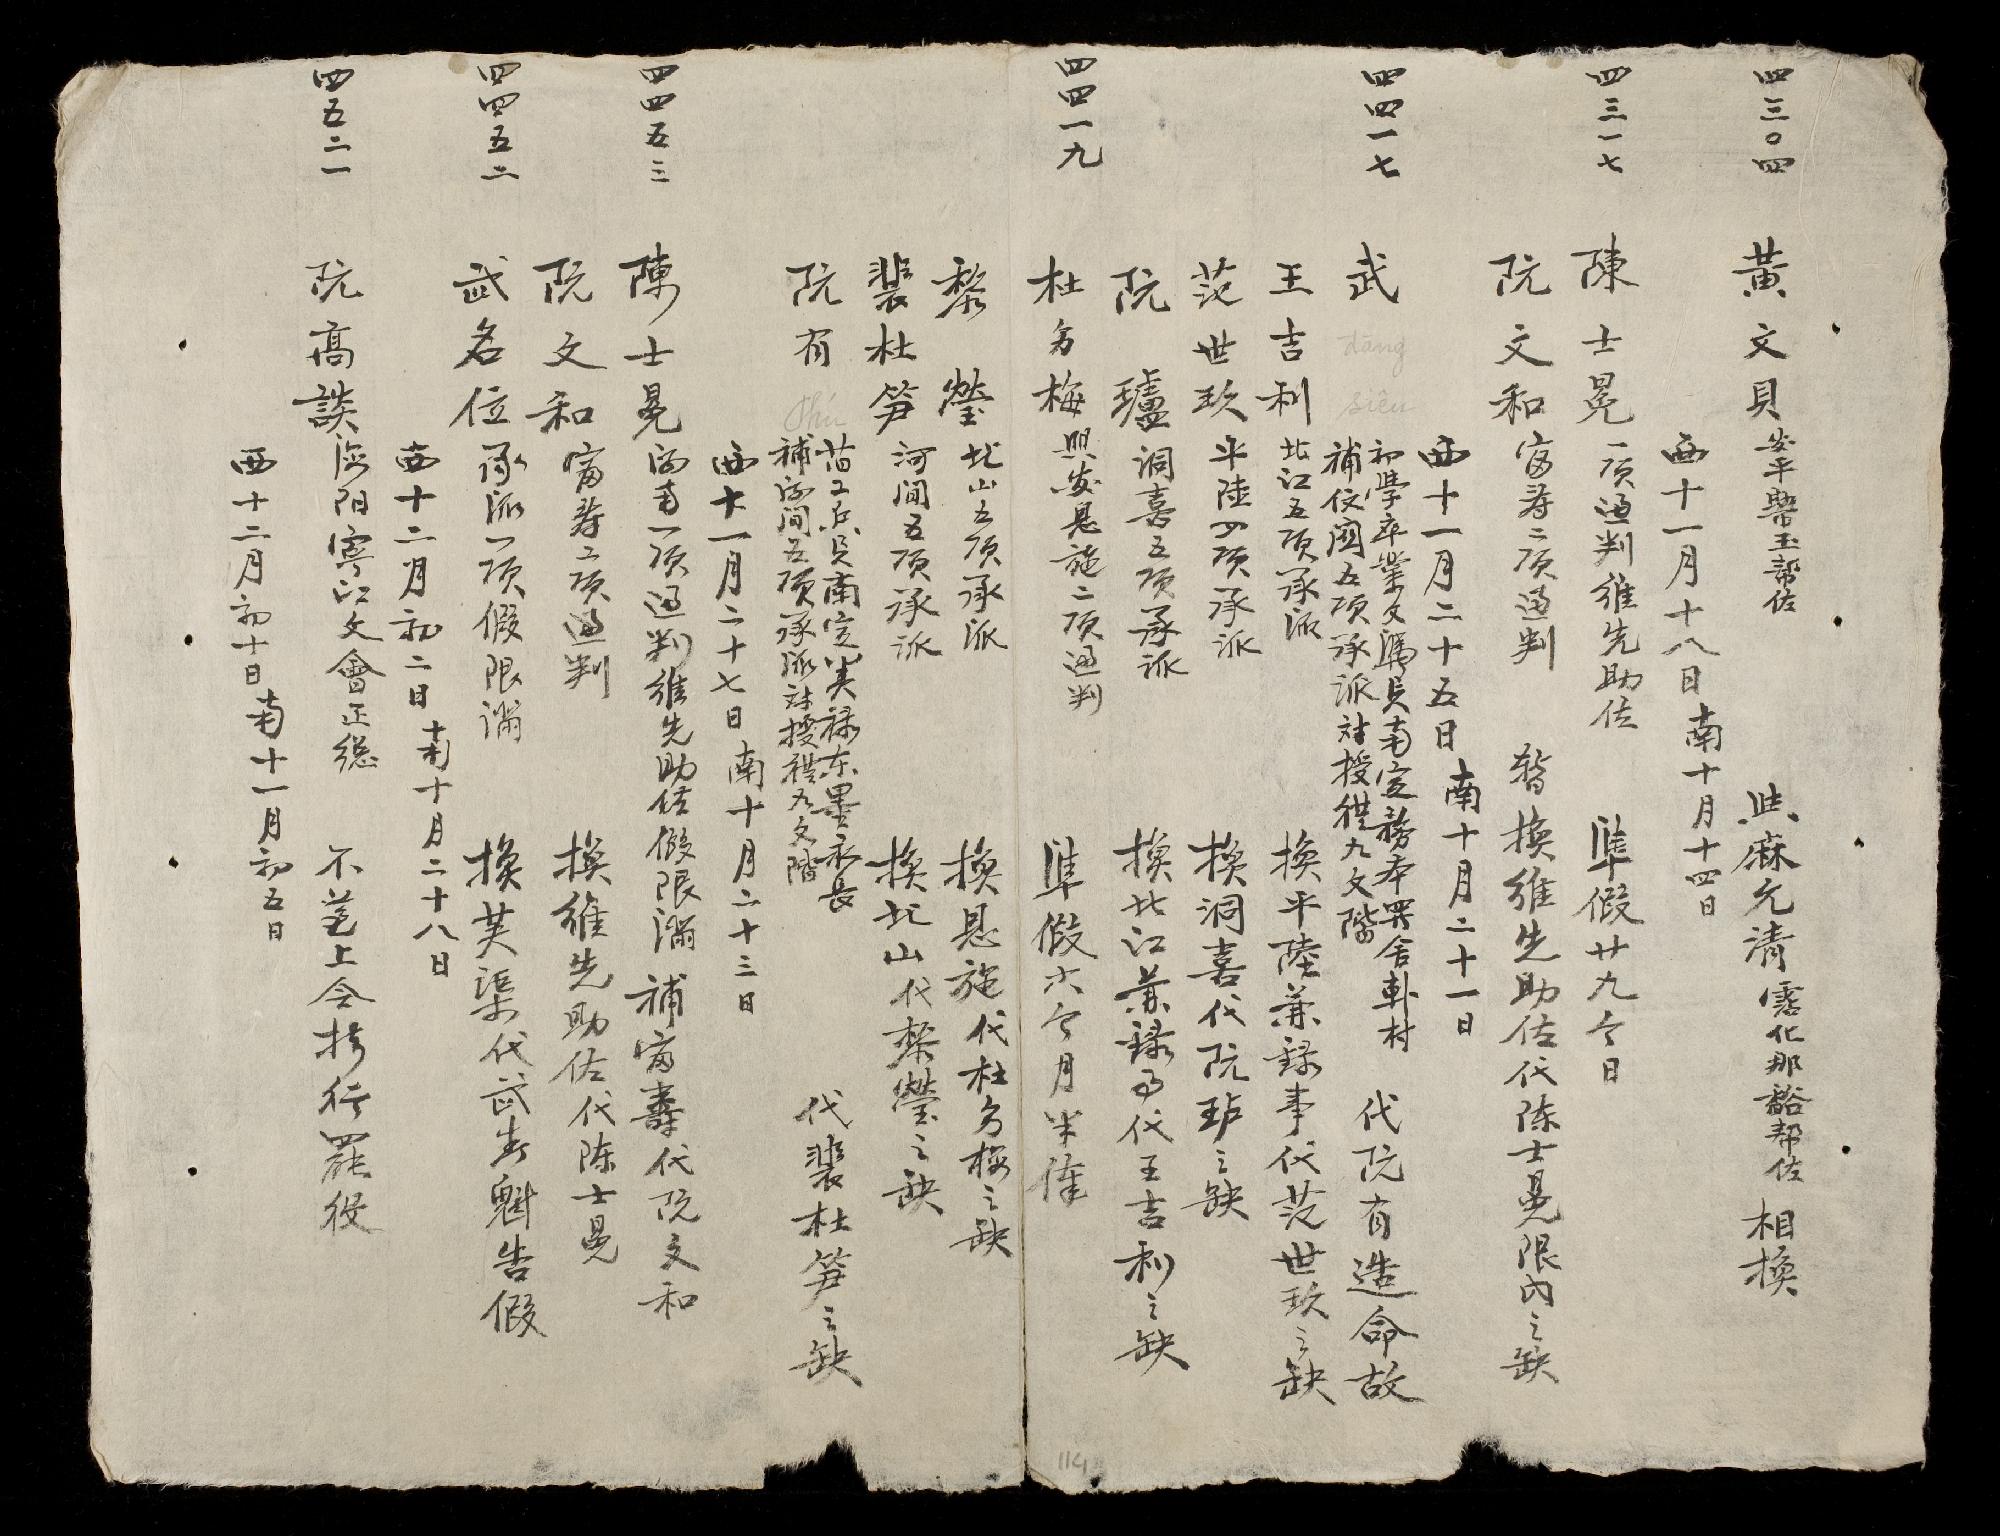 四三〇四　黃文貝 安平幣玉幫佐　熙麻允清霑化那谿幫佐相換
西十一月十八日南十月十四日
四三一七　陳士晃 一項通判維先助佐　準假廿九今日
阮文和 富壽二項通判　暫換維先助佐代陈士晃限內之缺
西十一月二十五日南十月二十一日
四四一七　武 đăng siêu 初學卒業文馮貝南定務本
補 五項承派 対授從九文階　代阮有造命故
王吉利 北江五項承派　換平陸兼録事代范世玖之缺
范世玖 平陸四項承派　換洞喜代阮玈之缺
阮 瓐 洞喜五項承派　換北江兼録事代王吉利之缺
四四一九　杜多梅 興安恩施二項通判　準假六个月半俸
黎 瑩 北山五項承派　換恩施代杜多梅之缺
裴杜笋 河間五項承派　換北山代黎瑩之缺
阮有 phú 南定美禄东墨永長
補 間五項承派対授從九文階　代裴杜笋之缺
西十一月二十七日南十月二十三日
四四五三　陳士晃 河南一項通判維先助佐假限滿　補富壽代阮文和
阮文和 富壽二項通判　換維先助佐代陈士晃
四四五二　武名位 承派一項假限滿　換芙渠代武 魁告假
西十二月初二日南十月二十八日
四五二一　阮高談 海阳寧江文會正總　不 上令 行罷役
西十二月初十日南十一月初五日
114